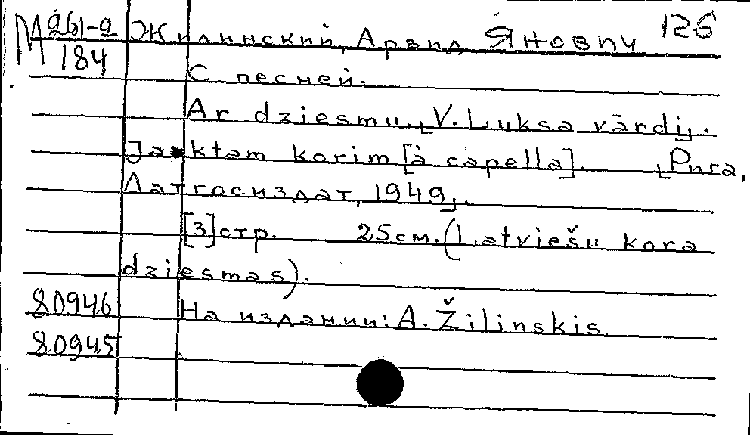 М 261-2/184 Жилинский, Арвид Янович 126
С песней.
Ar dziesmu. [V. Luksa vārdi].
Jauktam korim [à capella]. [Рига,
Латгосиздат, 1949].
[3] стр. 25 см. (Latviešu kora
dziesmas).
80946 На издании: A. Žilinskis.
80945